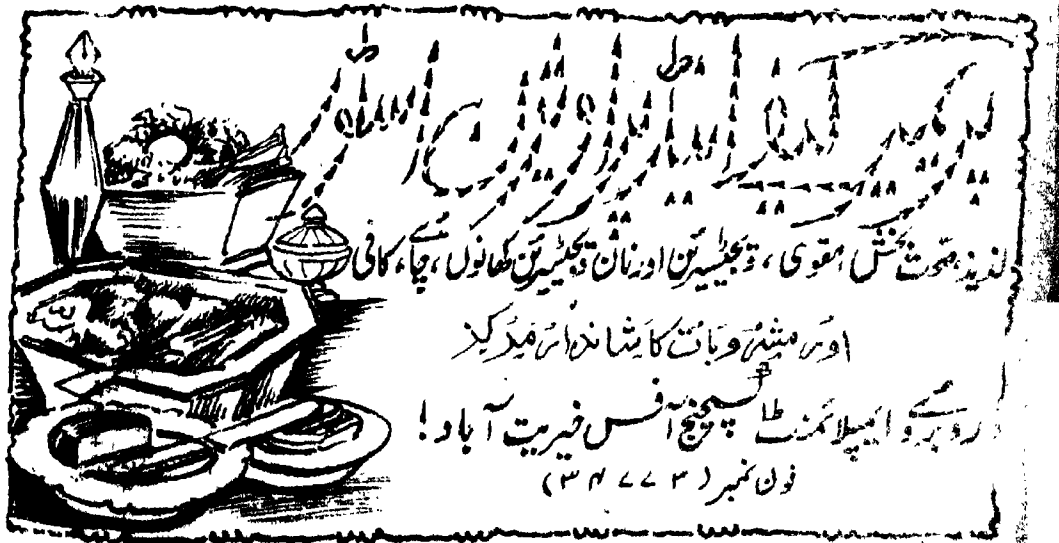 لذیذ، صحت بخش، مقوی، ویجیٹیرین اور نان ویجیٹیرین کھانوں، چائے، کافی
اور مشروبات کا شاندار مرکز
روبروئے ایمپلائمنٹ ایکسچینج آفس خیریت آباد!
فون نمبر (۳۴۷۷۳)